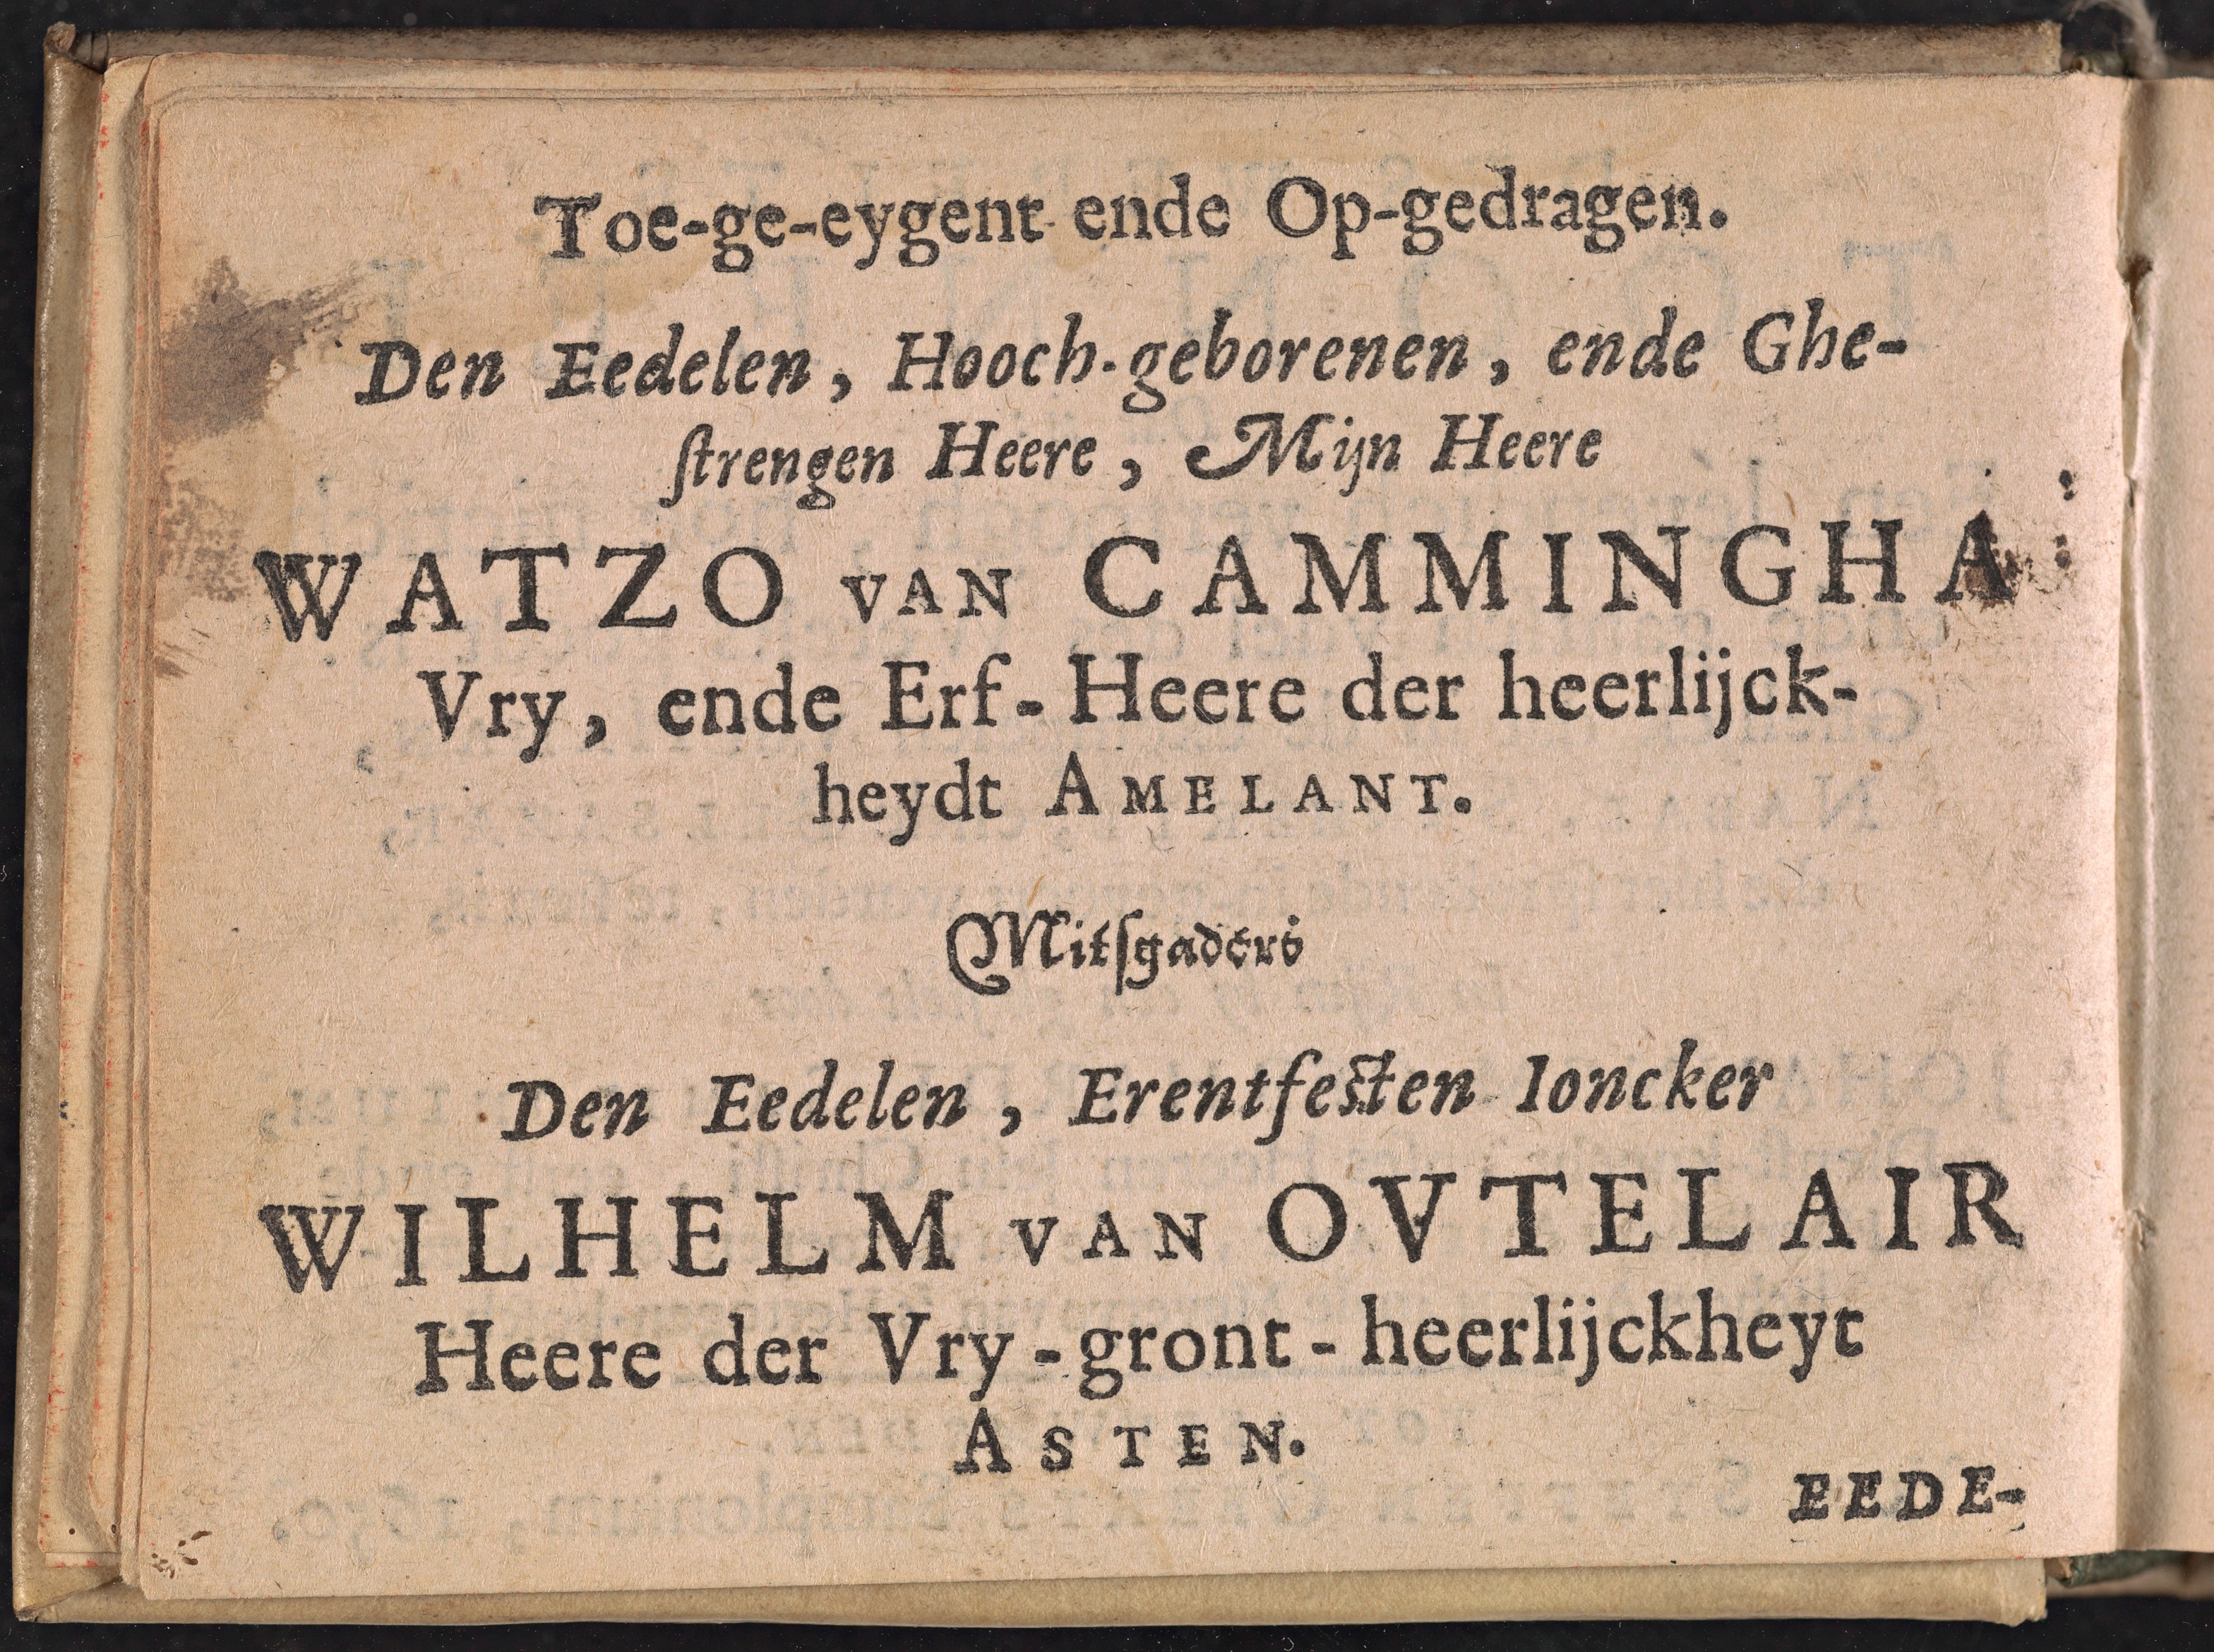 Toe-ge-eygent ende Op-gedragen.
Den Eedelen, Hooch-geborenen, ende Ghe-
ſtrengen Heere, Mijn Heere
WATZO VAN CAMMINGHA
Vry, ende Erf-Heere der heerlijck-
heydt AMELANT.
Mitſgaders
Den Eedelen, Erentfesten Ioncker
WILHELM VAN OVTELAIR
Heere der Vry-gront-heerlijckheyt
ASTEN.
EEDE-